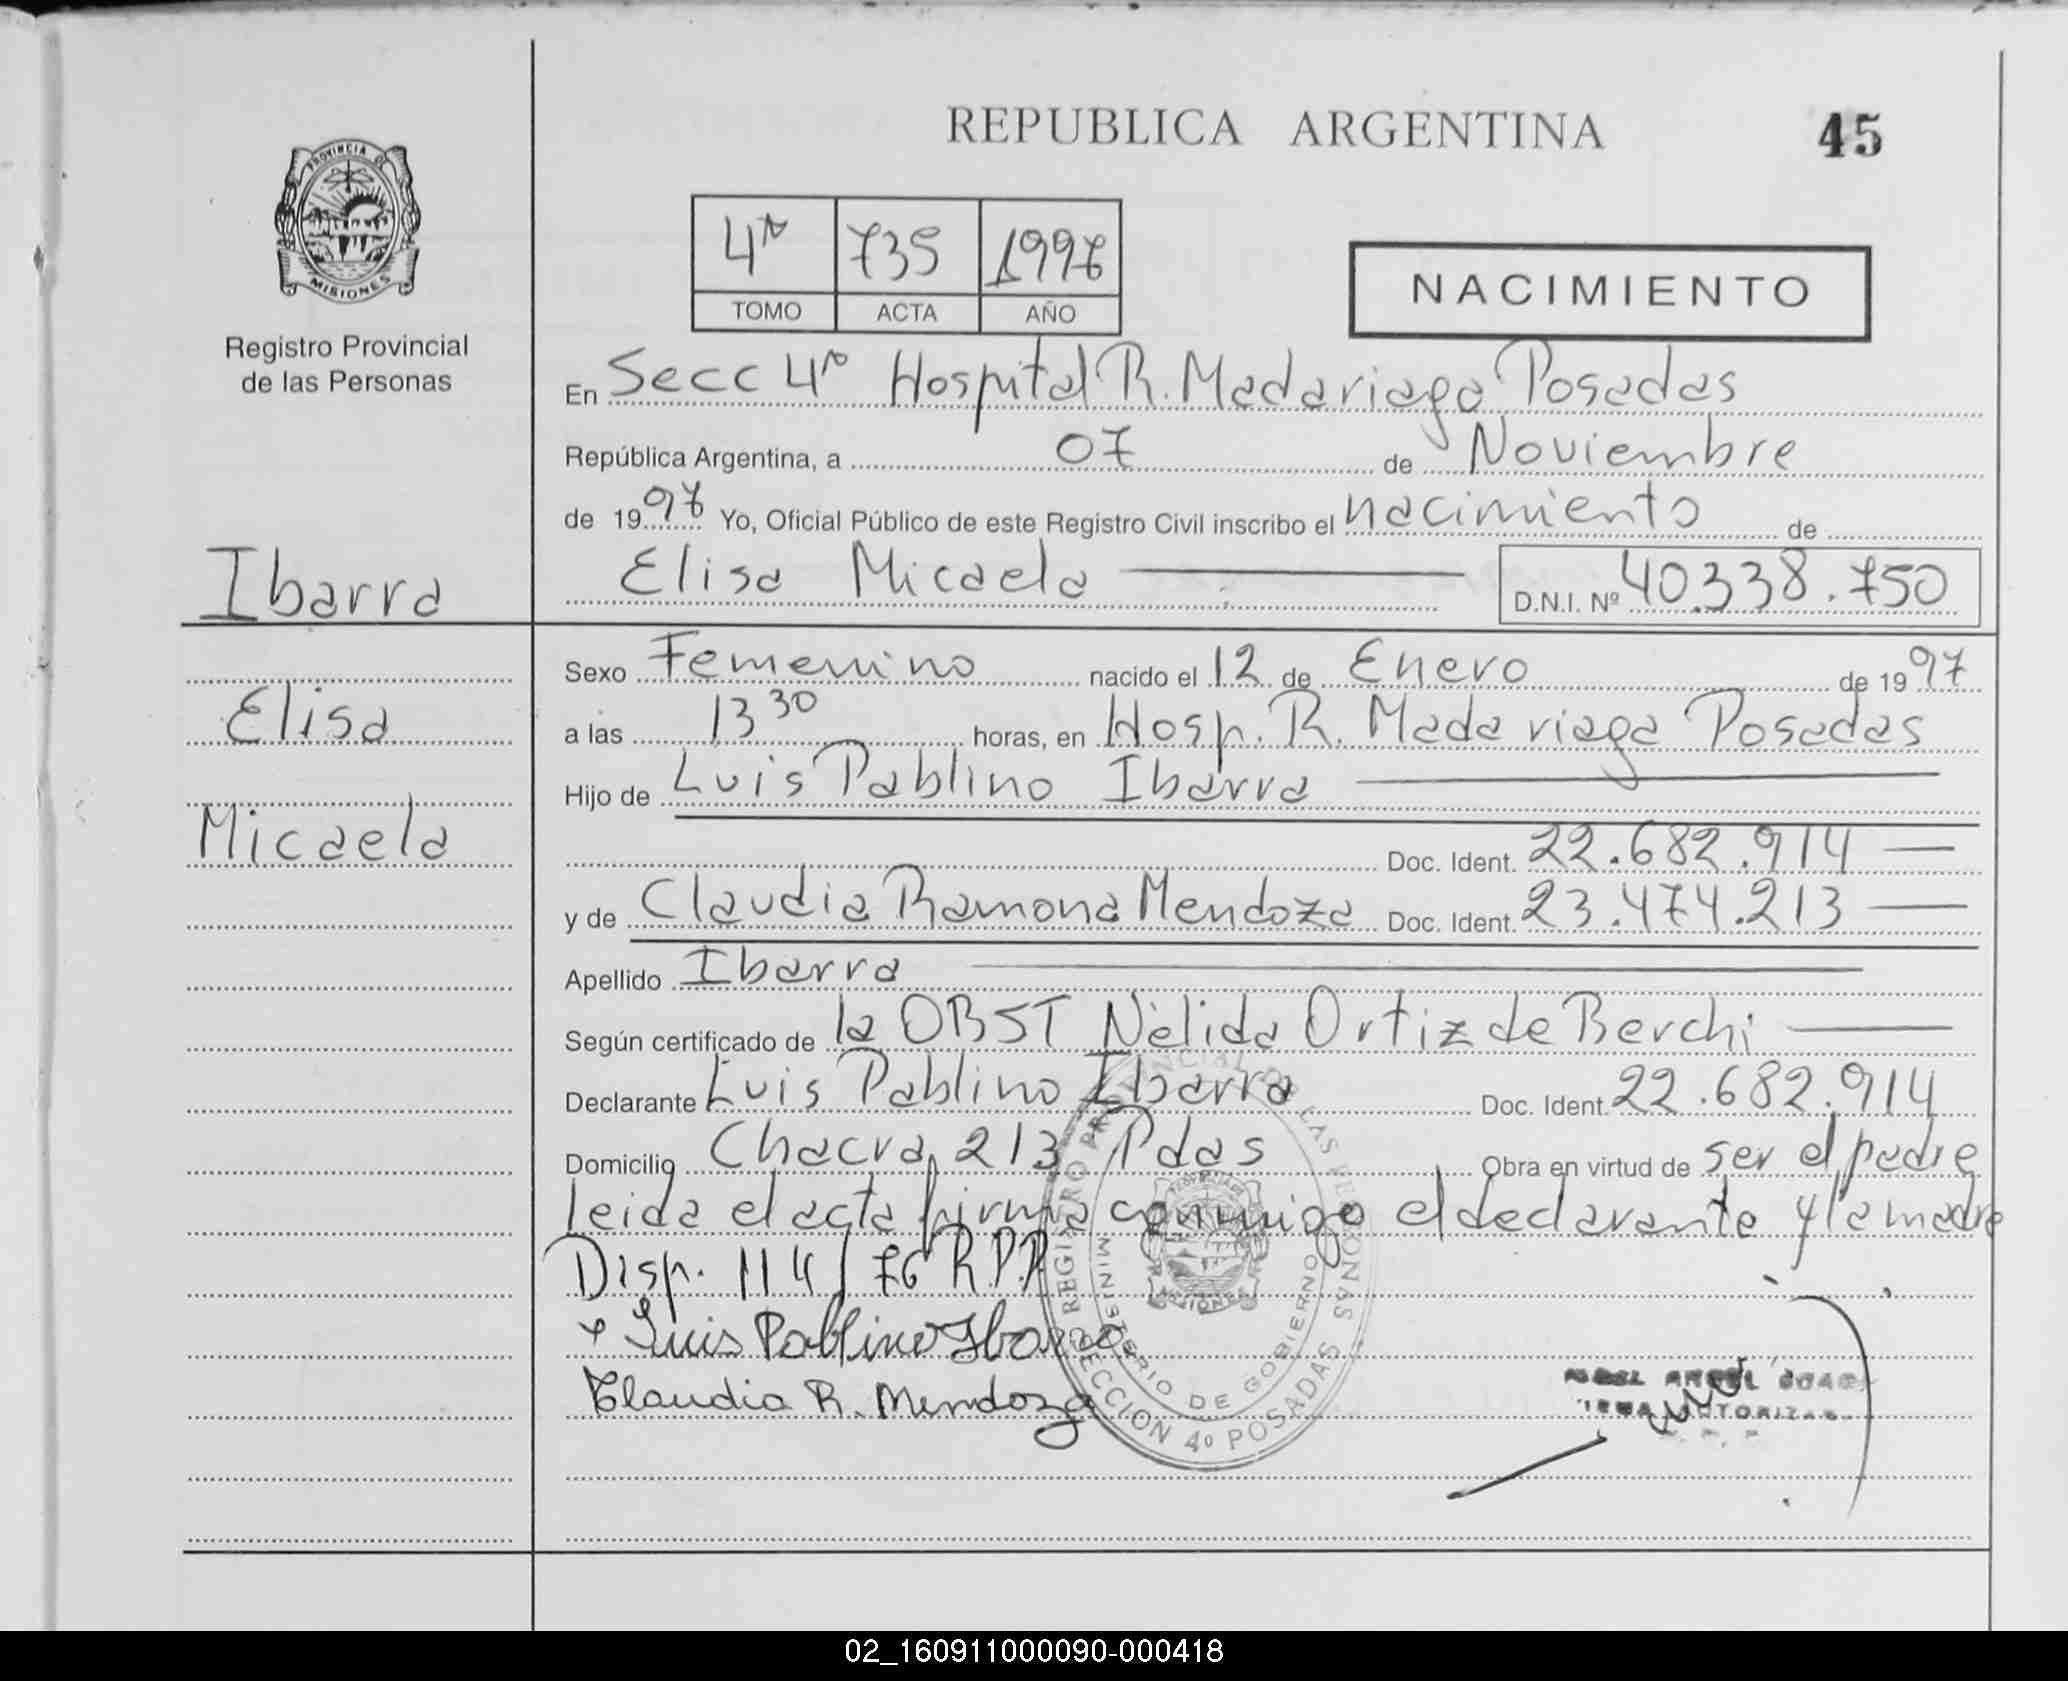 REPUBLICA ARGENTINA 45
PROVINCIA DE
MISIONES
Registro Provincial
de las Personas
4ª 735 1997
TOMO ACTA AÑO
NACIMIENTO
En Secc 4ª Hospital R. Madariaga Posadas
República Argentina, a 07 de Noviembre
de 1997 Yo, Oficial Público de este Registro Civil inscribo el nacimiento de
Ibarra
Elisa Micaela D.N.I. Nº 40.338.750
Sexo Femenino nacido el 12 de Enero de 1997
Elisa
a las 13 30 horas, en Hosp. R. Madariaga Posadas
Hijo de Luis Pablino Ibarra
Micaela
Doc. Ident. 22.682.914
y de Claudia Ramona Mendoza Doc. Ident. 23.474.213
Apellido Ibarra
Según certificado de la OBST Nèlida Ortiz de Berchi
Declarante Luis Pablino Ibarra Doc. Ident. 22.682.914
Domicilio Chacra 213 Pdas Obra en virtud de ser el padre
Leida el acta firma conmigo el declarante y la madre
Disp. 114/76 R.P.P.
Luis Pablino Ibarra
Claudia R. Mendoza
REGISTRO PROVINCIAL DE LAS PERSONAS
MINISTERIO DE GOBIERNO
SECCION 4º POSADAS
02_160911000090-000418